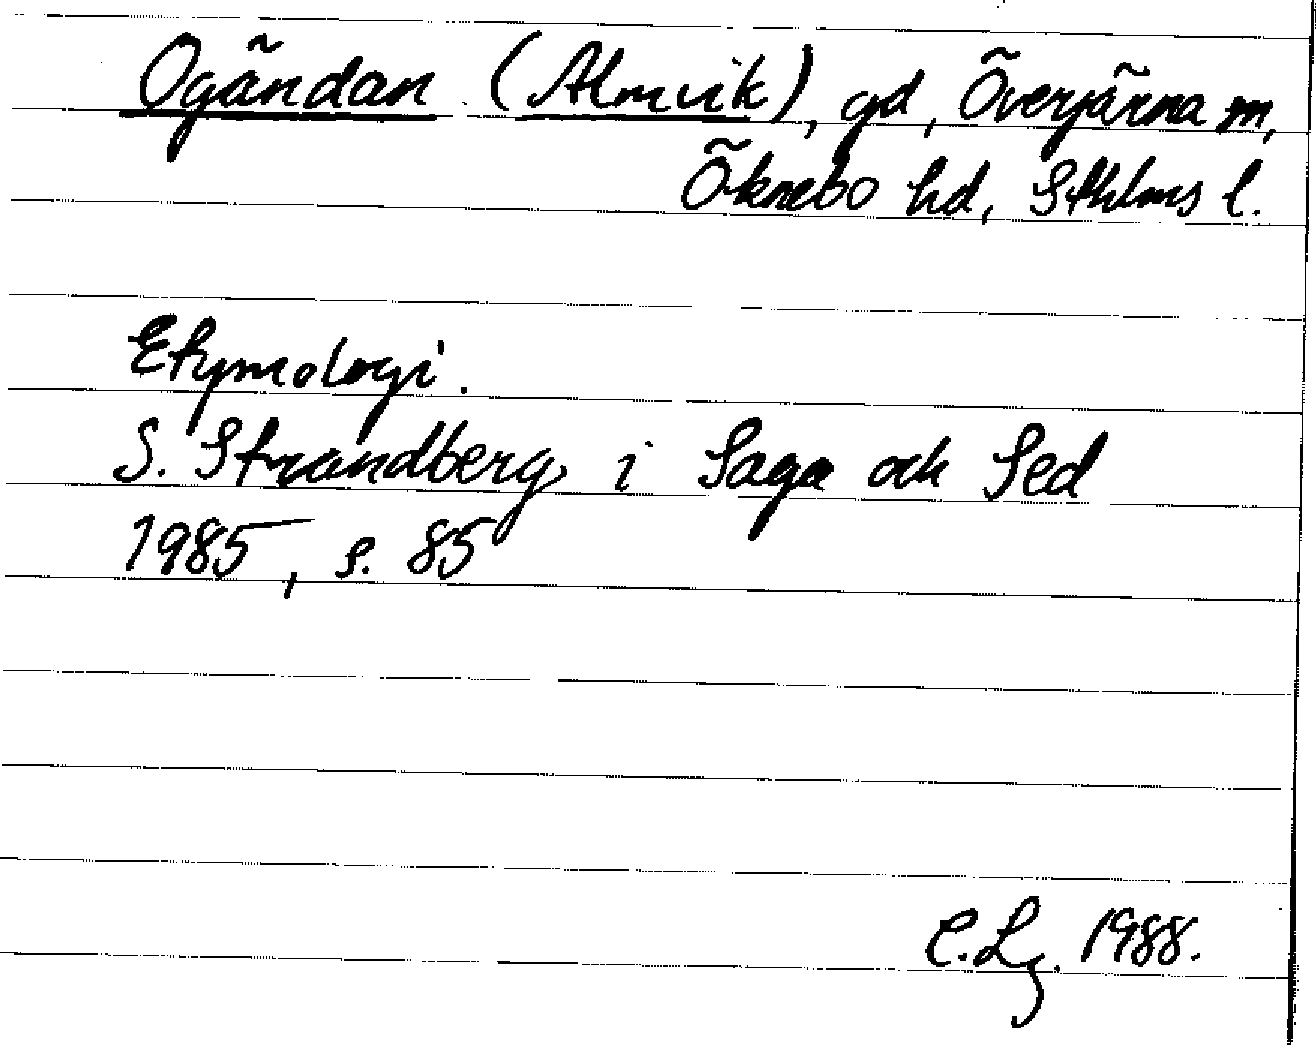 Ogändan (Almvik), gd, Överjärna sn,
Öknebo hd, Sthlms l.
Etymologi.
S. Strandberg i Saga och Sed
1985, s. 85
C.Lg. 1988.